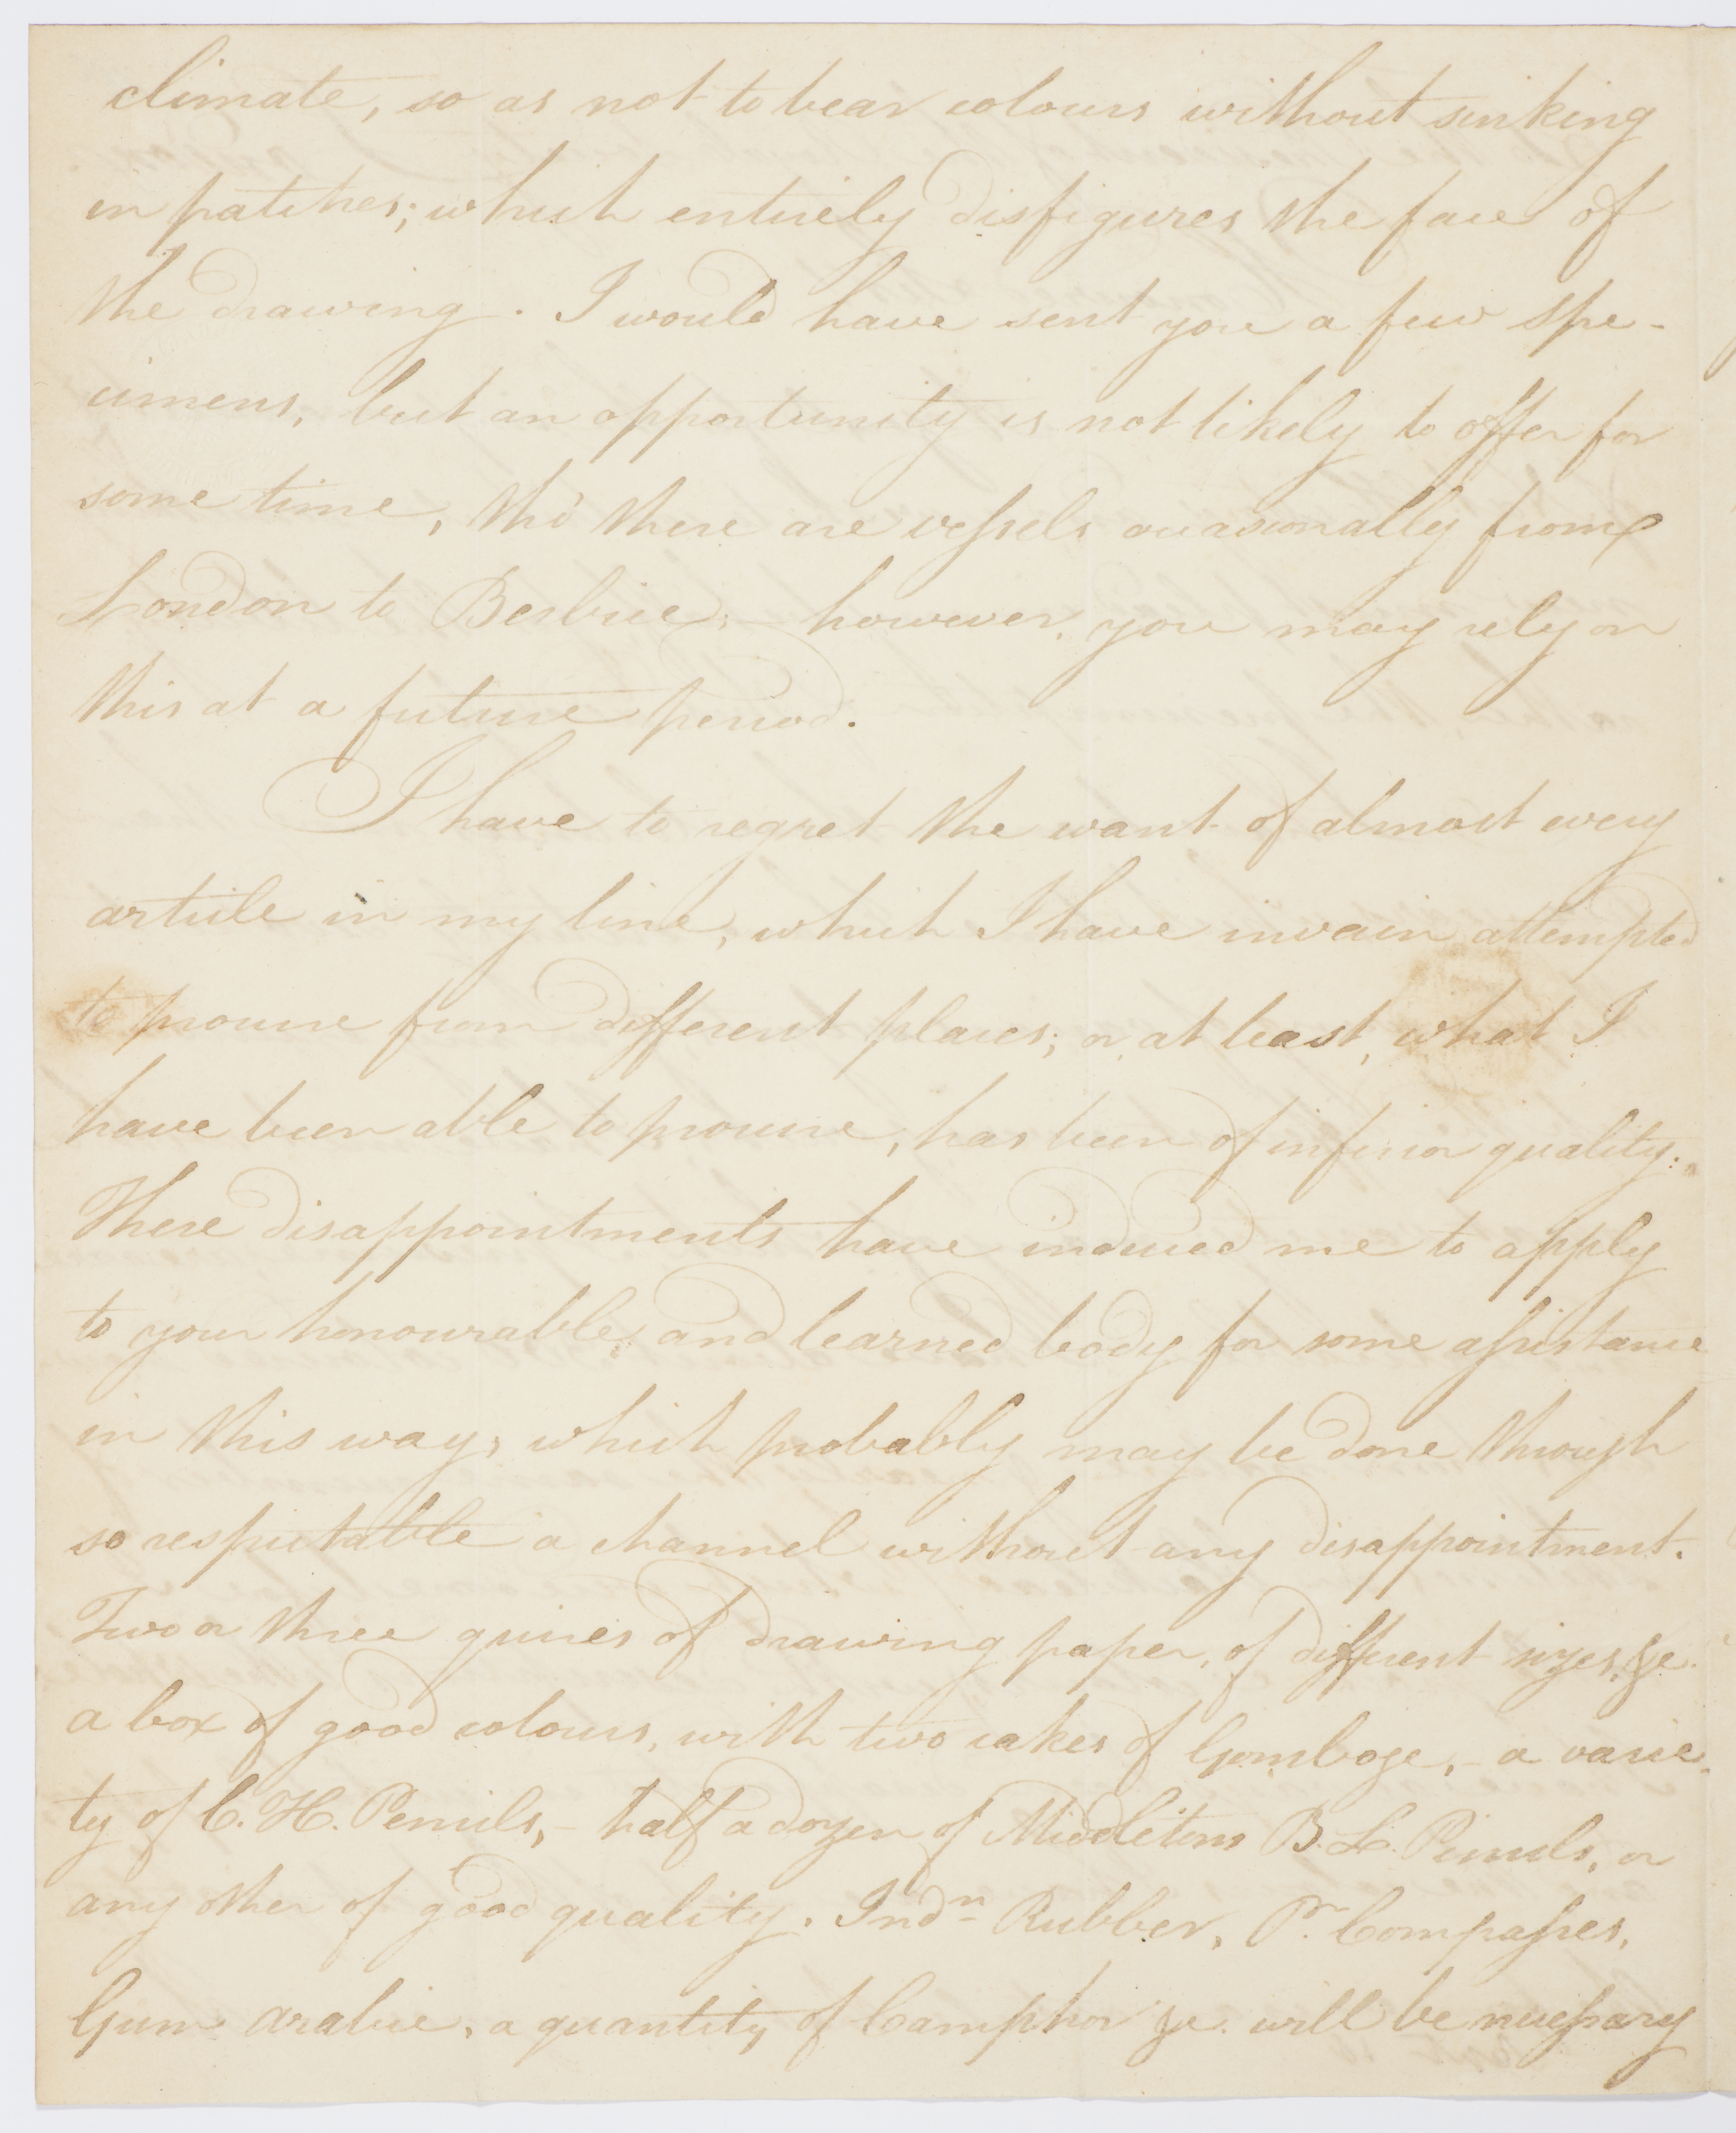 climate, so as not to bear colours without sinking
in patches; which entirely disfigures the face of
the drawing. I would have sent you a few spe-
cimens, but an opportunity is not likely to offer for
some time, tho' there are vessels occasionally from
London to Berbice; – however, you may rely on
this at a future period.
I have to regret the want of almost every
article in my line, which I have invain attempted
to procure from different places; or, at least, what I
have been able to procure, has been of inferior quality.
These disappointments have induced me to apply
to your honourable, and learned body for some assistance
in this way, which probably may be done through
so respectable a channel without any disappointment.
Two or three quires of drawing paper, of different sizes, &c.
a box of good colours, with two cakes of Gomboge, – a varie-
ty of C. H. Pencils, – half a dozen of Middletons B. L. Pencils, or
any other of good quality. Indn Rubber, Pr. Compasses,
Gum arabic, a quantity of Camphor &c. will be necessary